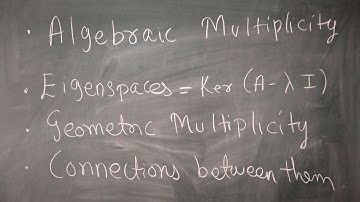 · Algebraic Multiplicity
· Eigenspaces = Ker (A - λ I)
· Geometric Multiplicity
· Connections between them.